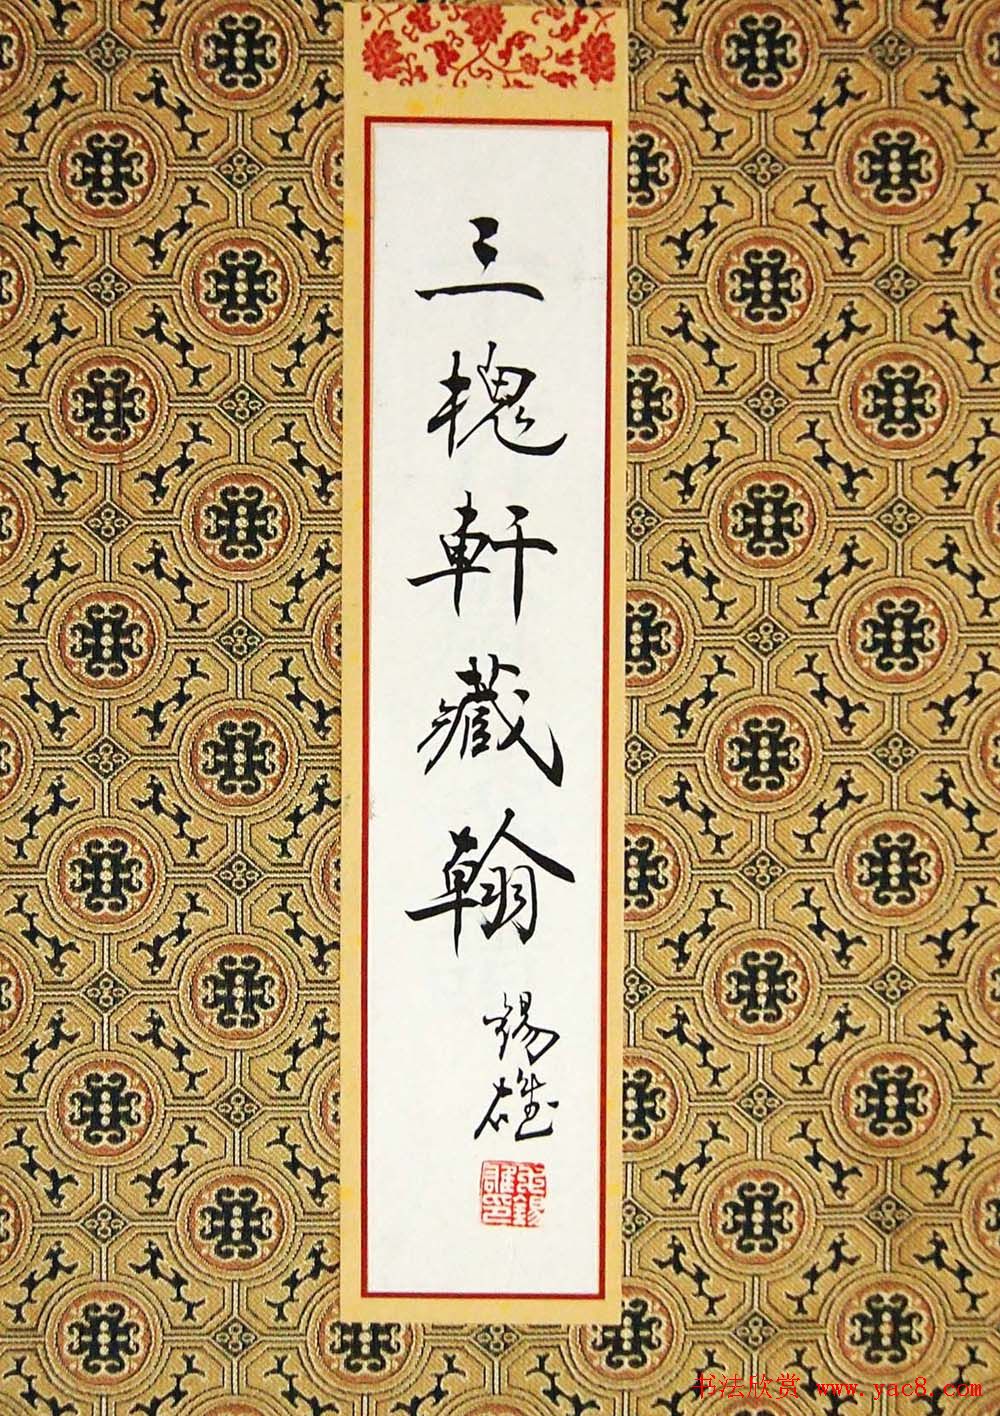 三槐軒藏翰
锡雄
书法欣赏 www.yac8.com